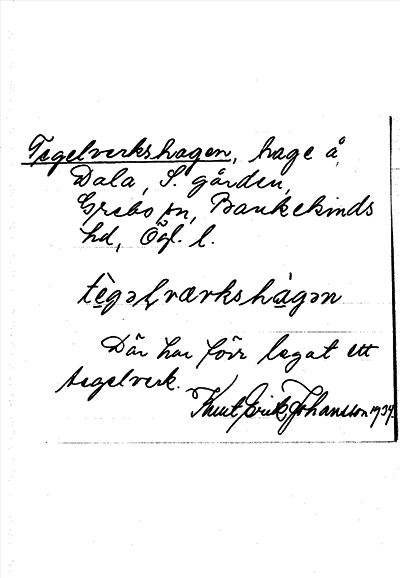 Tegelverkshagen, hage å
Dala, S. gården,
Grebo sn, Bankekinds
hd, Ög. l.
tègəlværkshàgən
Där har förr legat ett
tegelverk.
Knut Erik Johansson 1934.